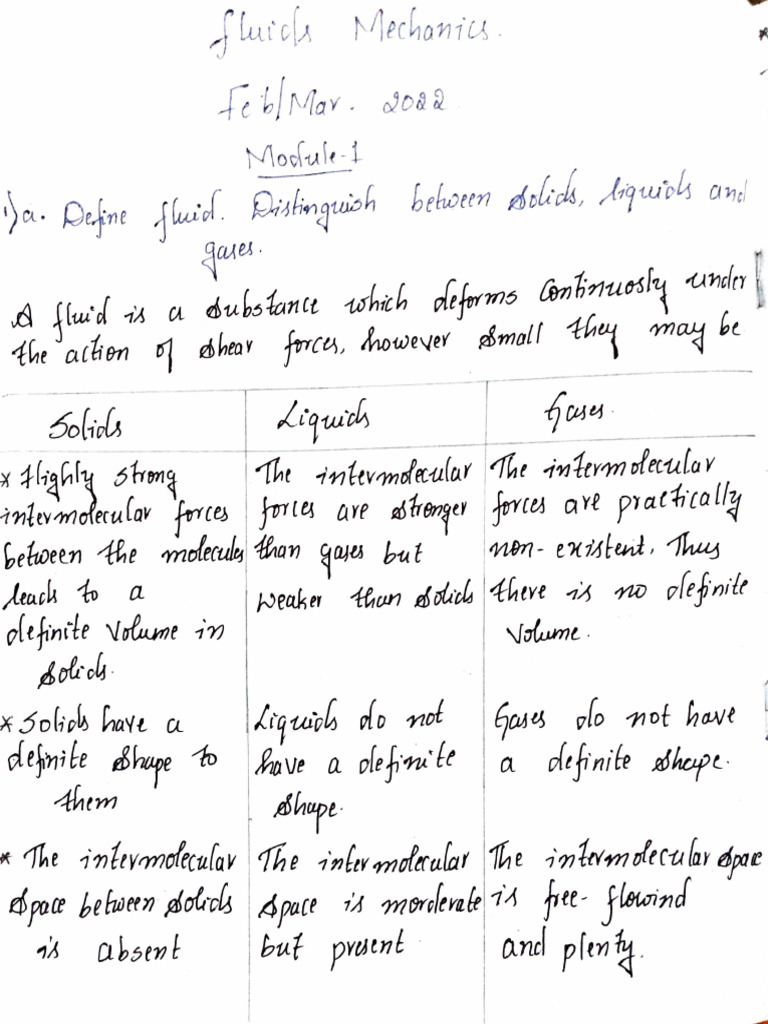 Fluids Mechanics.
Feb/Mar. 2022
Module-1
1)a. Define fluid. Distinguish between solids, liquids and
gases.
A fluid is a substance which deforms continuosly under
the action of shear forces, however small they may be
Solids
* Highly strong
intermolecular forces
between the molecules
leads to a
definite volume in
solids.
* Solids have a
definite shape to
them
* The intermolecular
space between solids
is absent
Liquids
The intermolecular
forces are stronger
than gases but
weaker than solids
Liquids do not
have a definite
shape.
The intermolecular
space is morderate
but present
Gases.
The intermolecular
forces are practically
non-existent. Thus
there is no definite
volume.
Gases do not have
a definite shape.
The intermolecular space
is free-flowind
and plenty.